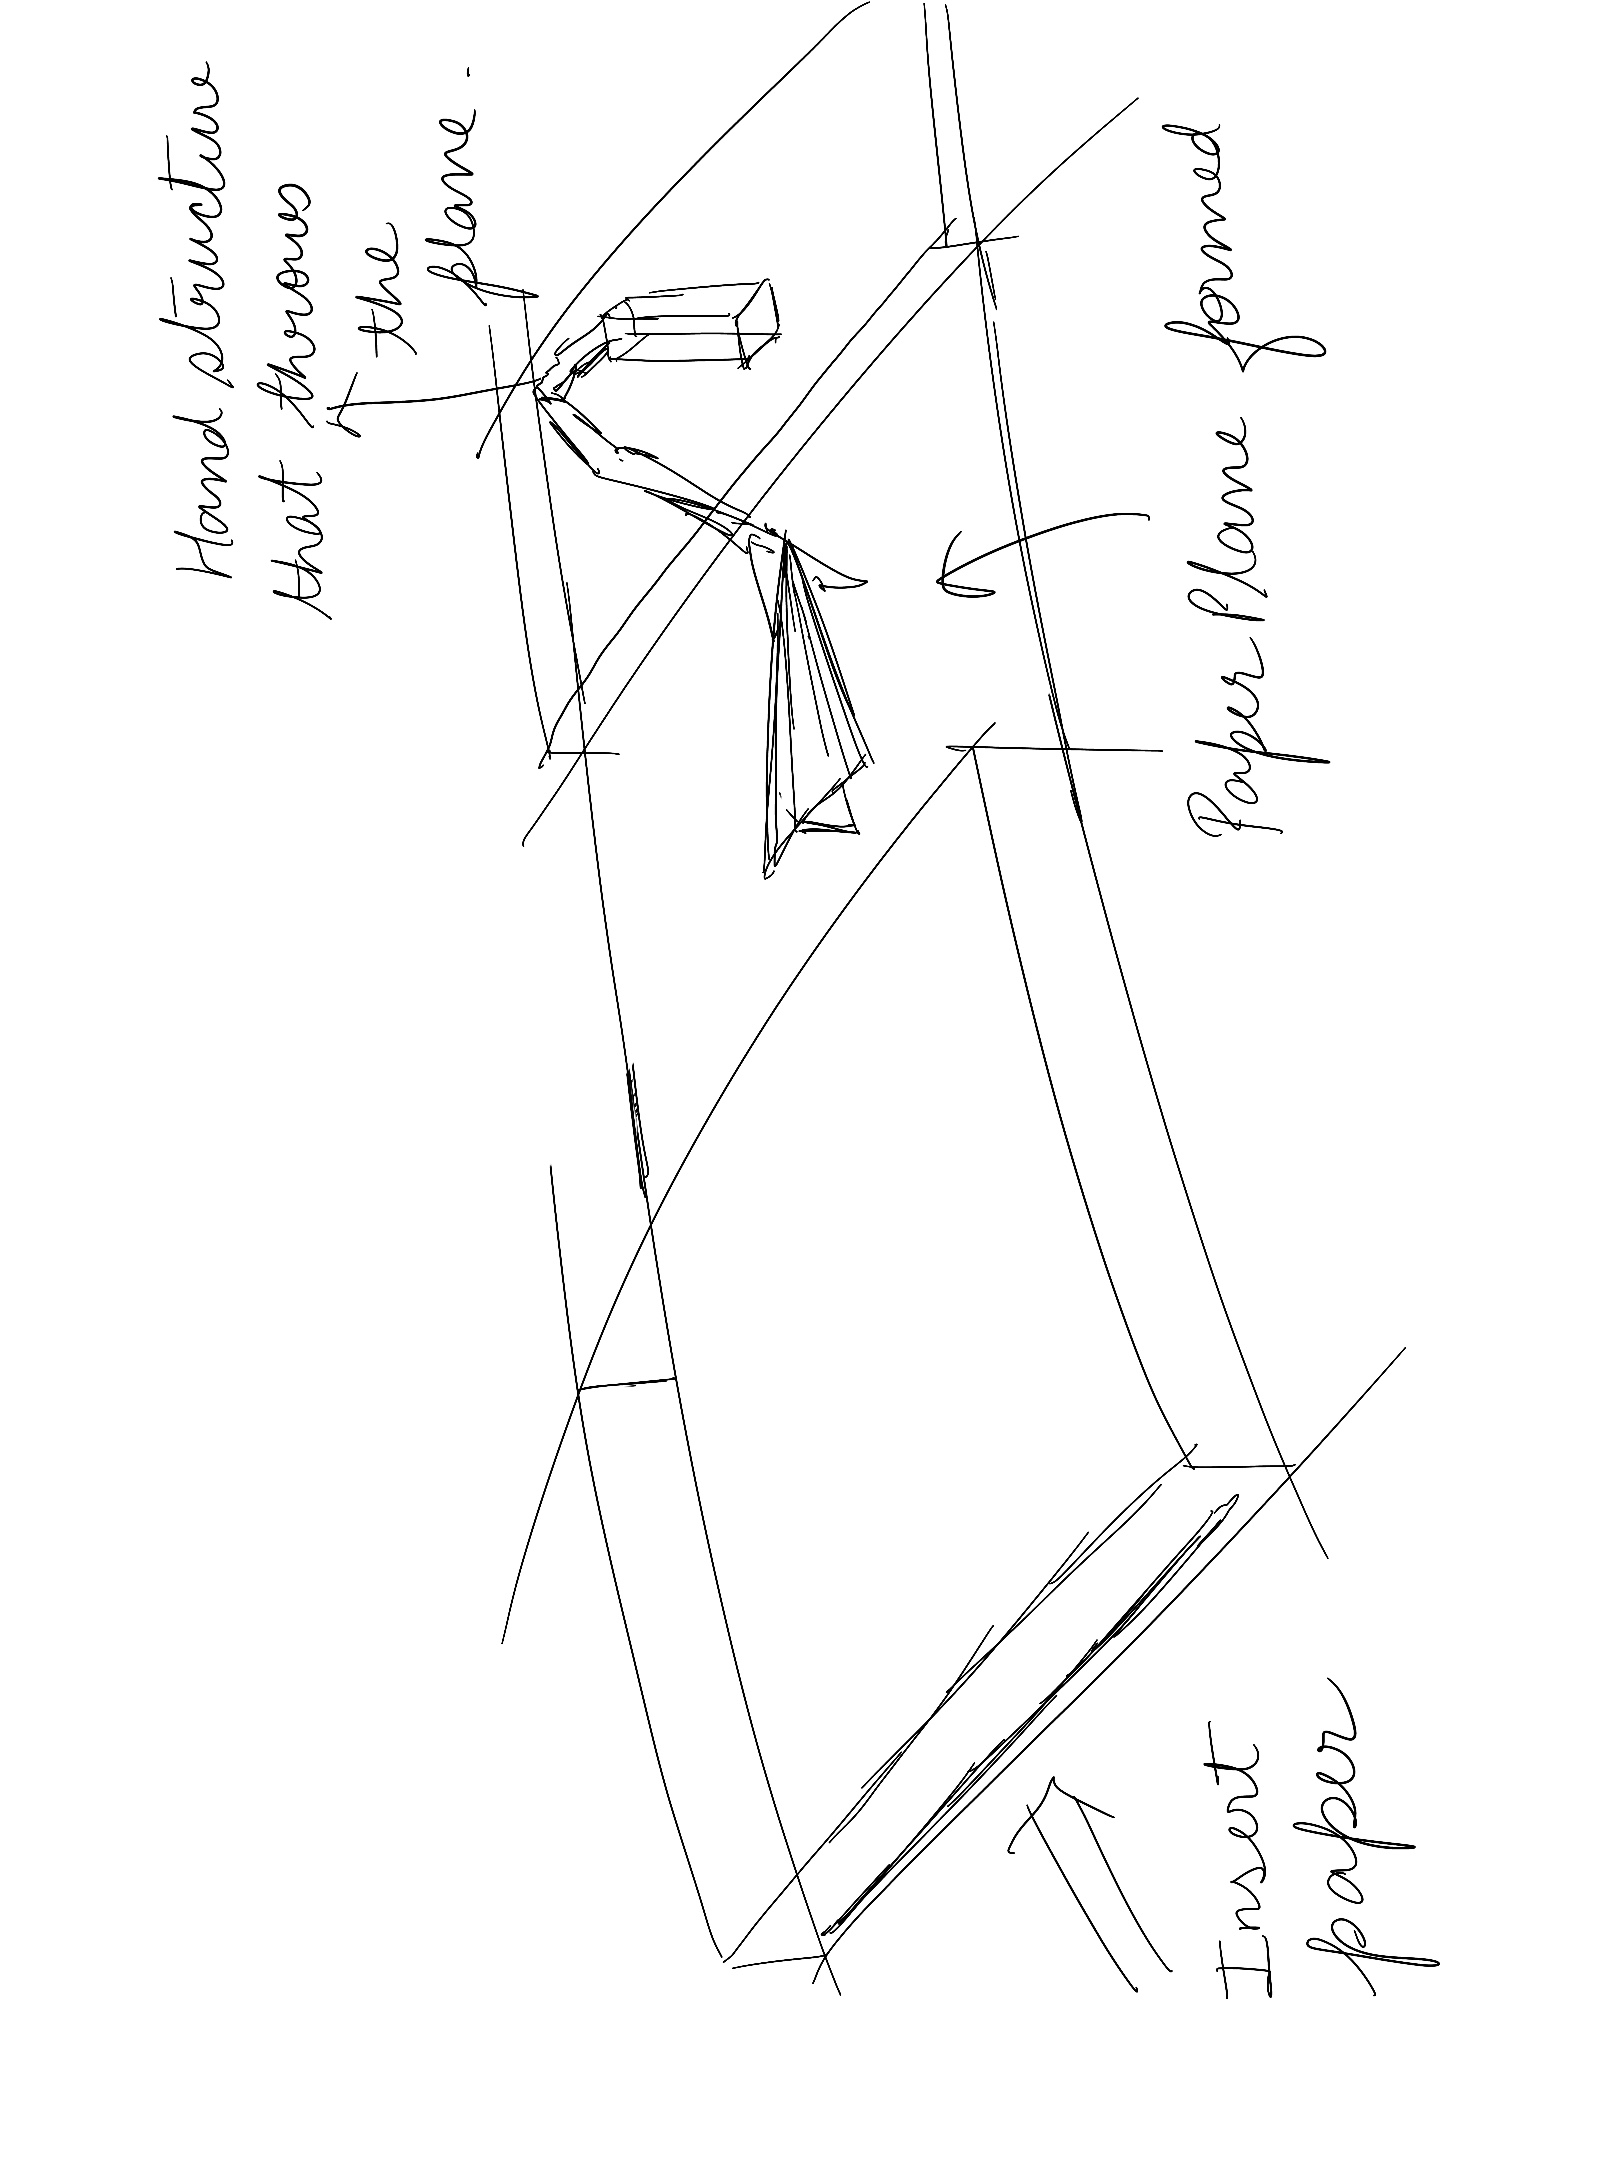 Hand structure
that throws
the
plane.
Paper Plane formed
Insert
paper